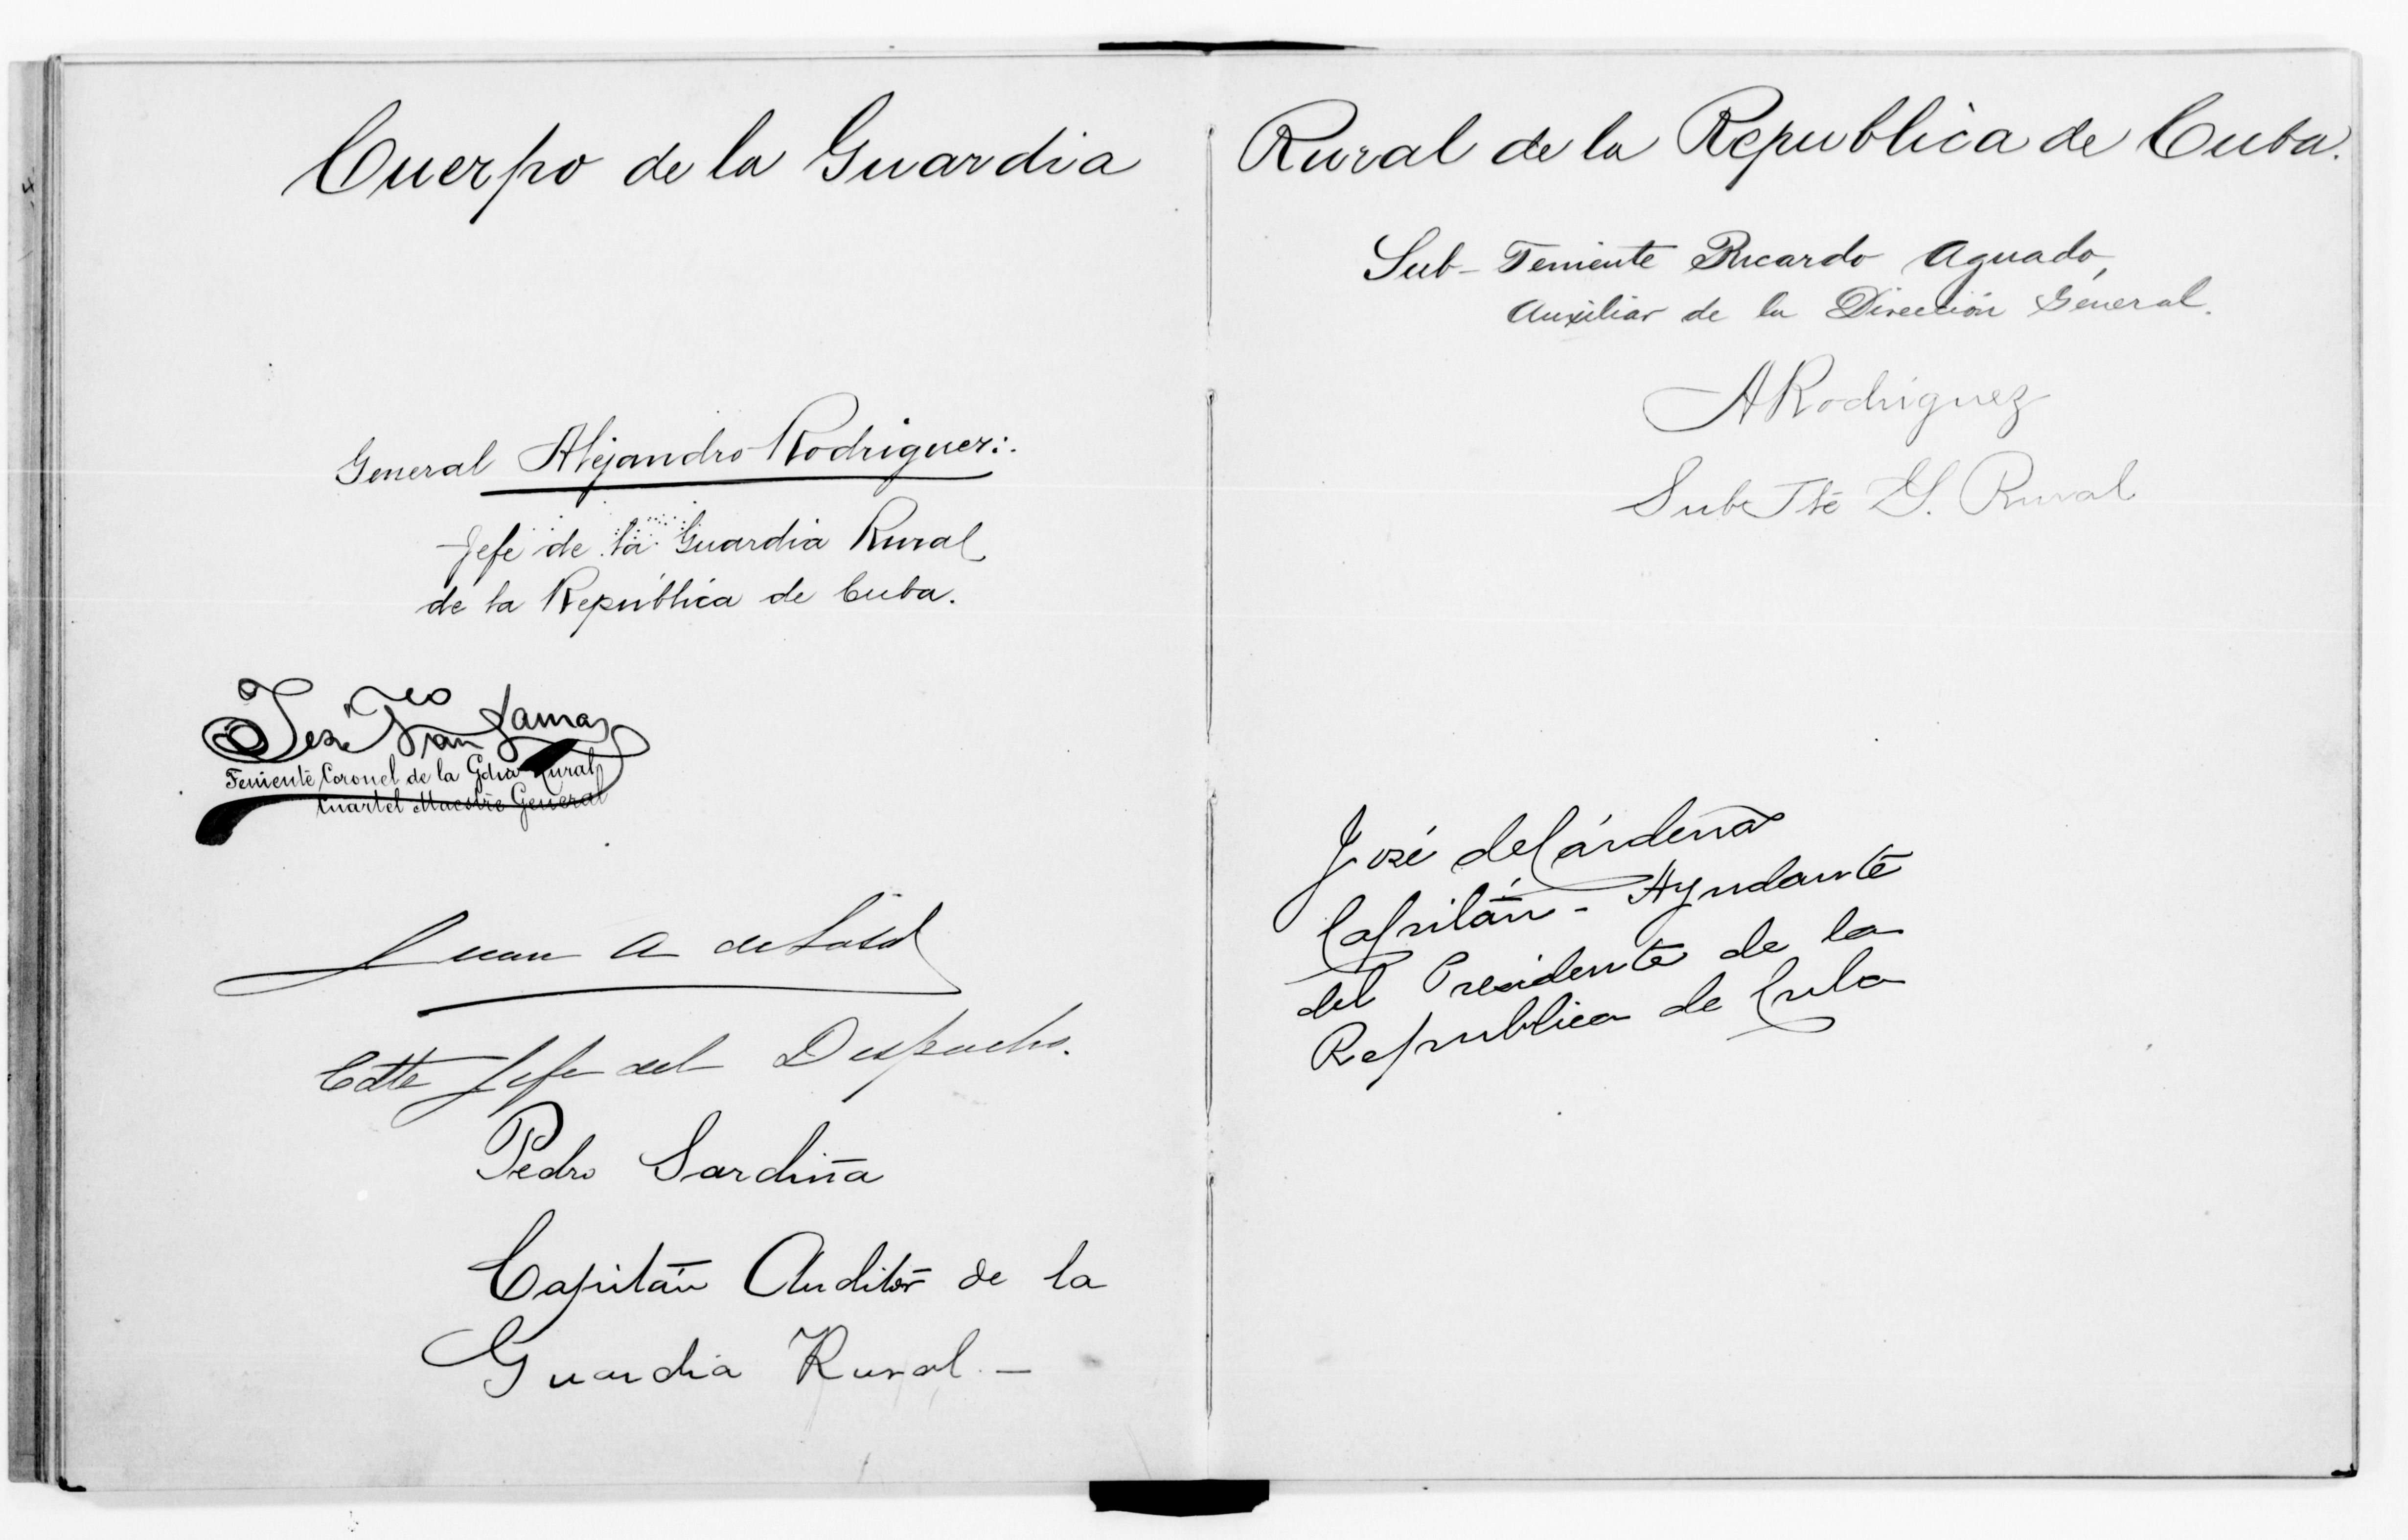 Cuerpo de la Guardia
General Alejandro Rodriguez:.
Jefe de la Guardia Rural
de la República de Cuba.
José Fco
Lamas
Teniente Coronel de la Gdia Rural
Cuartel Maestre General
Juan A de
Cdte Jefe del Despacho.
Pedro Sardiña
Capitán Auditor de la
Guardia Rural -
Rural de la Republica de Cuba.
Sub-Teniente Ricardo Aguado,
Auxiliar de la Dirección General.
ARodriguez
Sub Tte G. Rural
José de Cárdenas
Capitán - Ayudante
del Presidente de la
Republica de Cuba